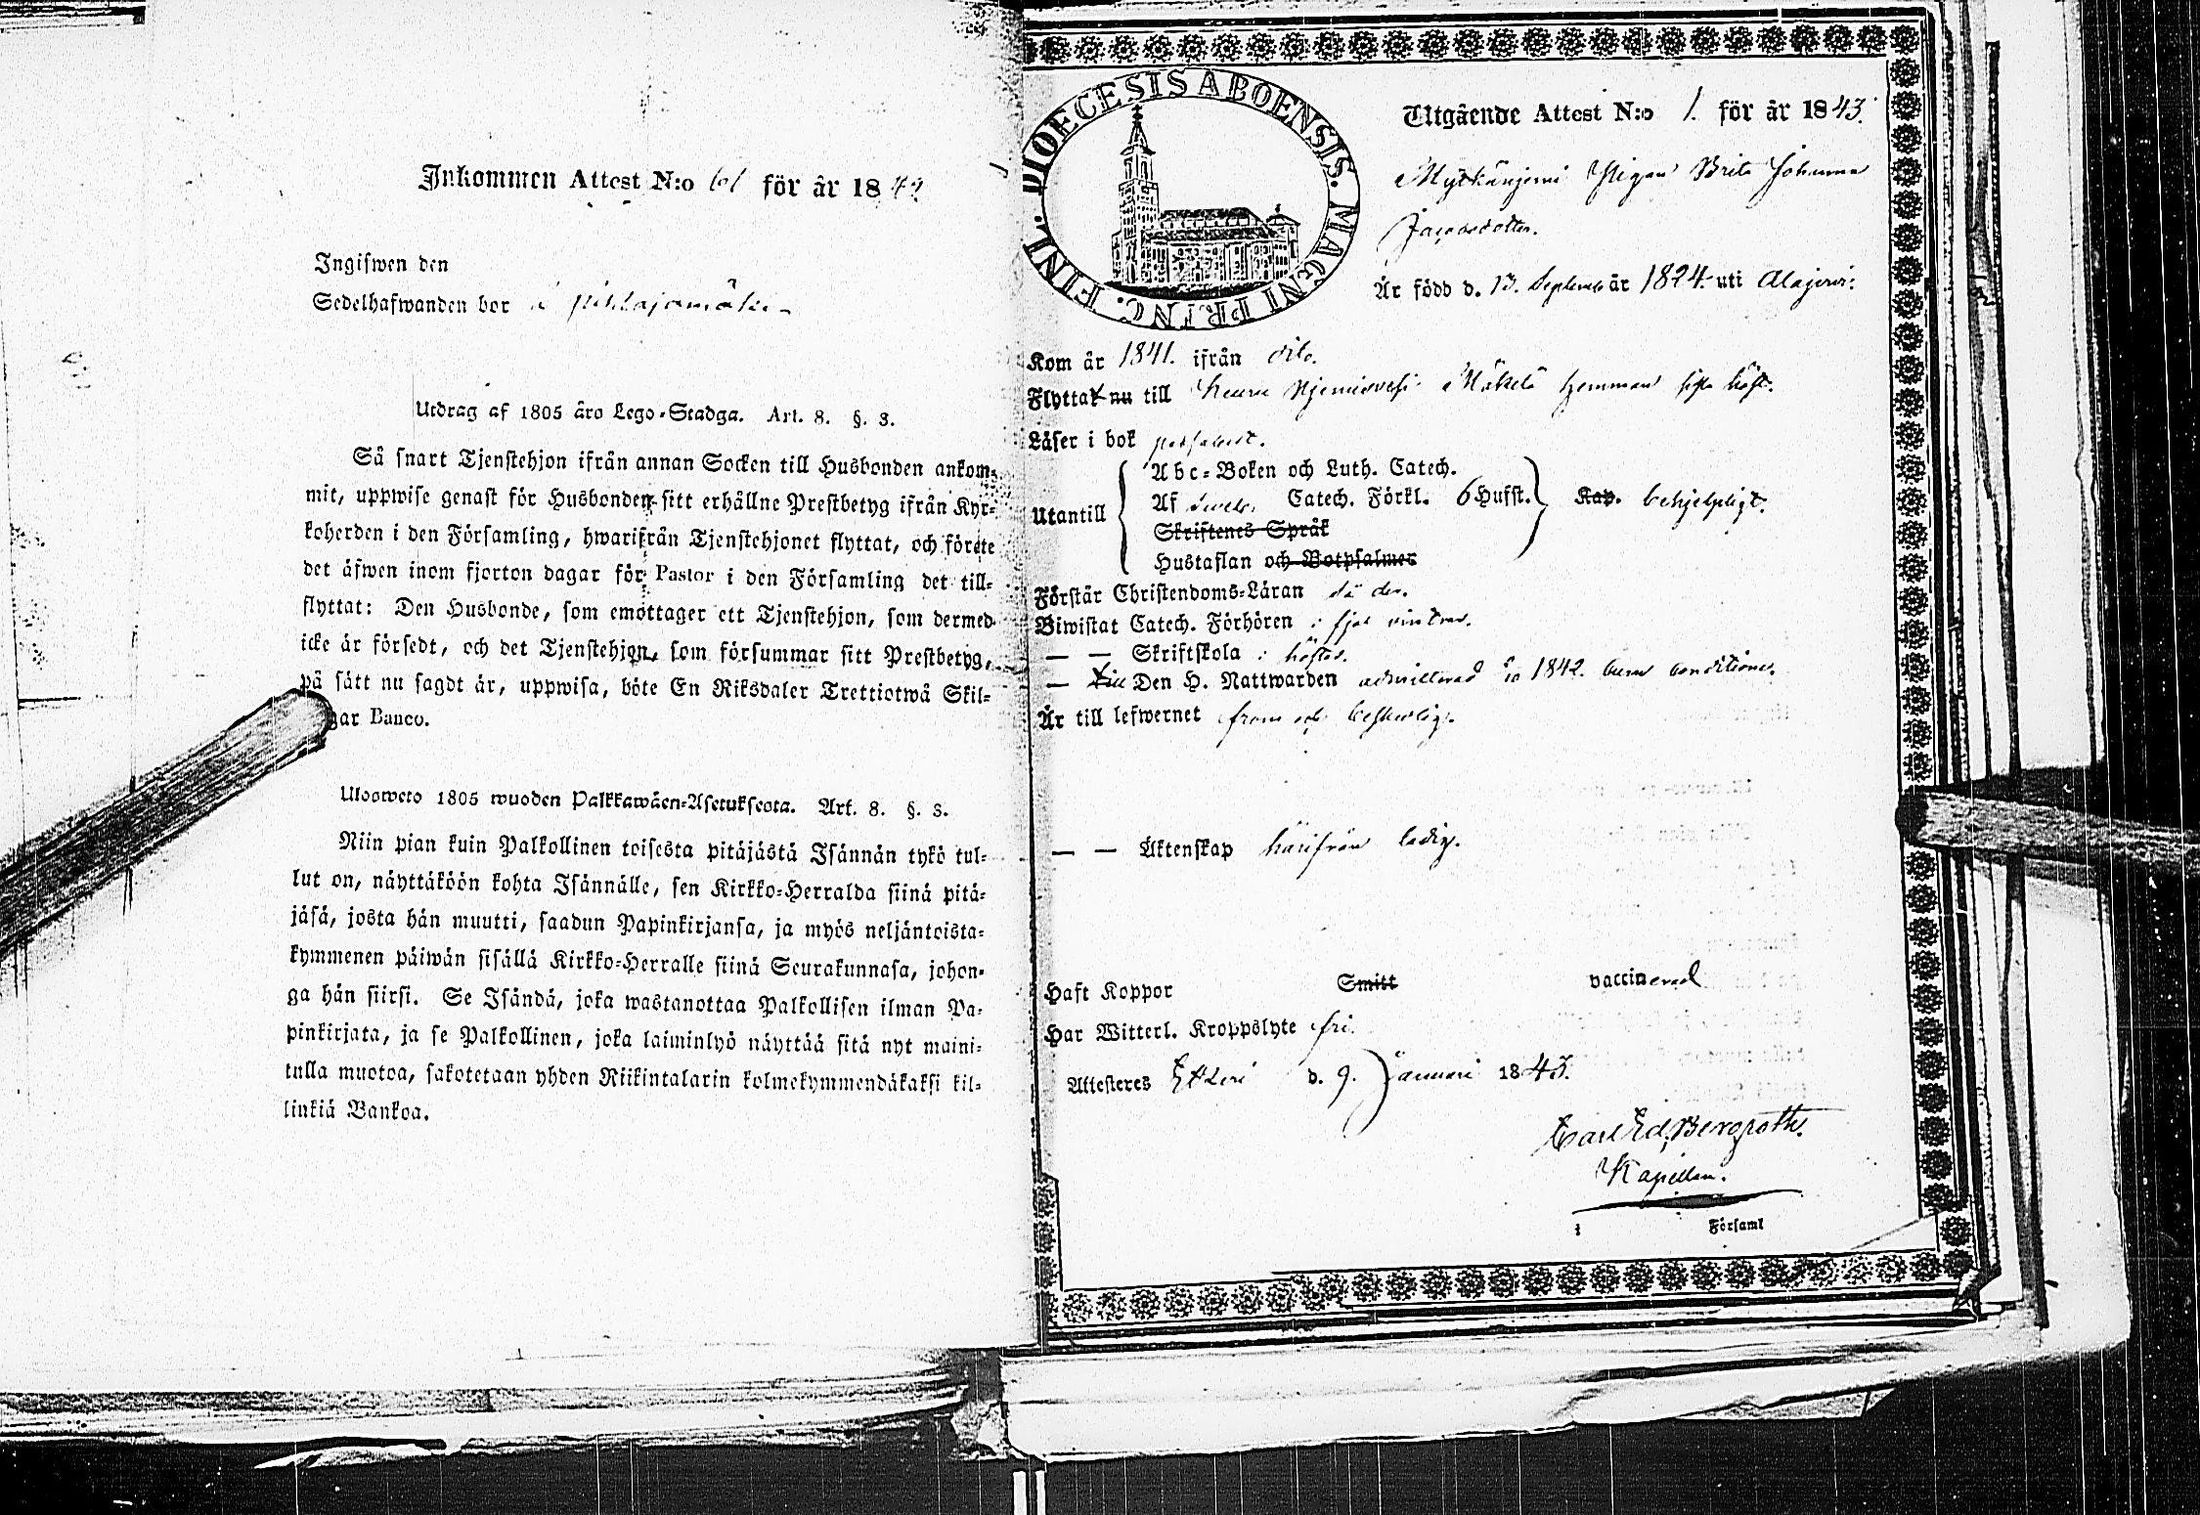 Inkommen Attest N:o 61 för år 184
Ingifwen den
Sedelhafwanden bor i pihlajamäki
Utdrag af 1805 års Lego-Stadga. Art. 8. §. 3.
Så snart Tjenstehjon ifrån annan Socken till Husbonden ankom-
mit, uppwise genast för Husbonden sitt erhållne Prestbetyg ifrån Kyr-
koherden i den Församling, hwarifrån Tjenstehjonet flyttat, och förete
det äfwen inom fjorton dagar för Pastor i den Församling det till-
flyttat: Den Husbonde, som emottager ett Tjenstehjon, som dermed
icke är försedt, och det Tjenstehjon, som försummar sitt Prestbetyg,
på sätt nu sagdt är, uppwisa, böte En Riksdaler Trettiotwå Skil-
gar Banco.
Ulosweto 1805 wuoden Palkkawäen-Asetuksesta. Art. 8. §. 3.
Niin pian kuin Palkollinen toisesta pitäjästä Isännän tykö tul-
lut on, näyttäköön kohta Isännälle, sen Kirkko-Herralda siinä pitä-
jäsä, josta hän muutti, saadun Papinkirjansa, ja myös neljäntoista-
kymmenen päiwän sisällä Kirkko-Herralle siinä Seurakunnasa, johon-
ga hän siirsi. Se Isändä, joka wastanottaa Palkollisen ilman Pa-
pinkirjata, ja se Palkollinen, joka laiminlyö näyttää sitä nyt maini-
tulla muotoa, sakotetaan yhden Riikintalarin kolmekymmendäkaksi kil-
linkiä Bankoa.
DIOECESIS ABOENSIS. MAGNI PRINC. FINL.
Utgående Attest N:o 1. för år 1843.
Pigan Brita Johanna
Jacobsdotter.
Är född d. 13. September år 1824. uti Alajervi.
Kom år 1841. ifrån dito.
Flyttat nu till Keuru Mäkelä hemman sist. höst.
Läser i bok
Abc-Boken och Luth. Catech.
Utantill Af Svebel. Catech. Förkl. 6 Hufst. Kap. behjelpligt.
Skriftenes Språk
Hustaflan och Botpsalmer
Förstår Christendoms-Läran så der.
Biwistat Catech. Förhören i fjol vintras.
— — Skriftskola i höstas.
— Till Den H. Nattwarden admitterad år 1842. cum conditione.
Är till lefwernet from och beskedlig.
— — Äktenskap härifrån ledig.
Haft Koppor Smitt vaccinerad
Har Witterl. Kroppslyte fri.
Attesteres Etseri d. 9. Januari 1843.
Carl Ed. Bergroth.
Kapellan.
i Församl